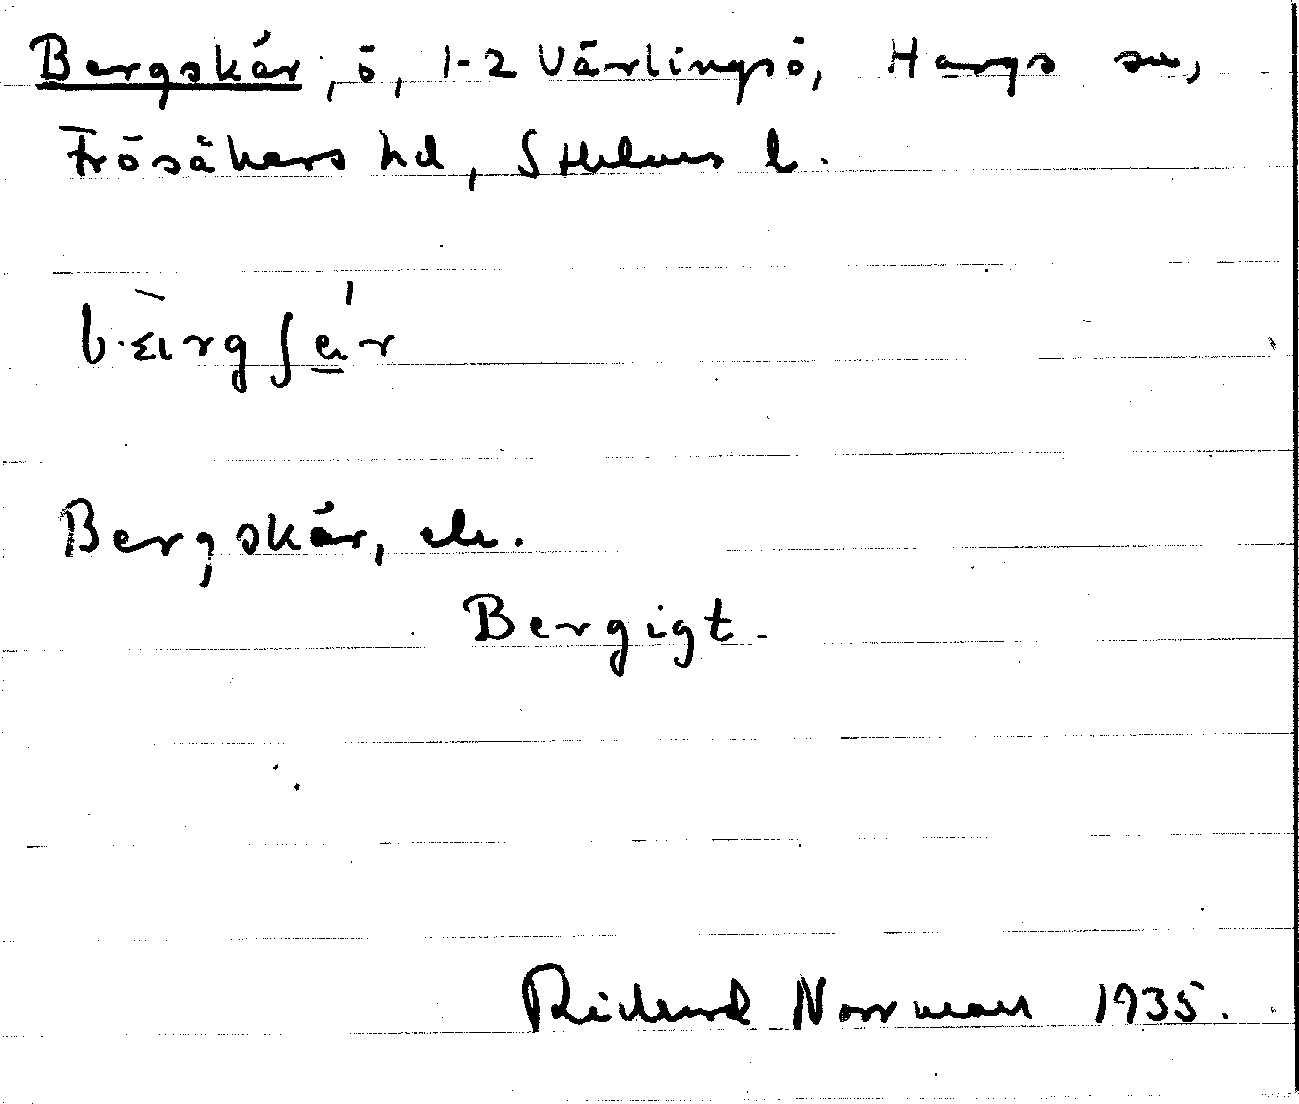 Bergskär, ö, 1-2 Värlingsö, Hargs sn,
Frösåkers hd, Sthlms l.
Bergskär, ek.
Bergigt.
Richard Norrman 1935.